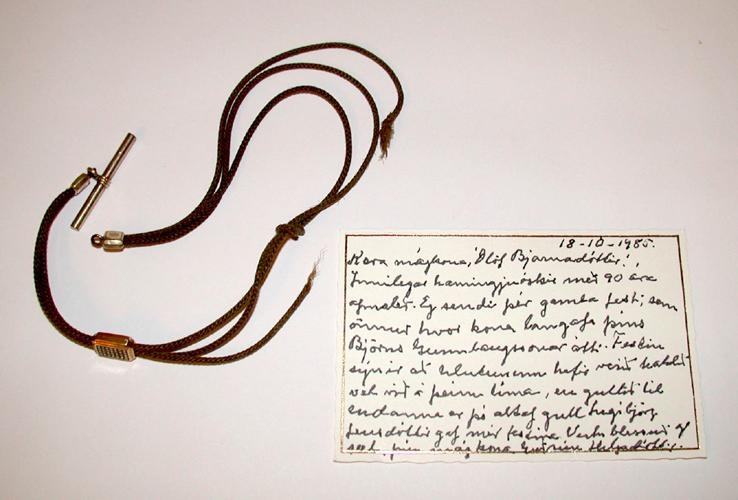 18-10-1985.
Kæra mágkona, Ólöf Bjarnadóttir!,
Innilegar hamingjuóskir með 90 ára
afmælið. Ég sendi þér gamla festi, sem
önnur hvor kona langafa þíns
Björns Gunnlaugssonar átti. Festin
sýnir að hlutunum hefir verið haldið
vel við á þeim tíma, en gullið til
endanna er þó altaf gull. Ingibjörg
Jensdóttir gaf mér festina. Vertu blessuð og
sæl, þín mágkona, Guðrún Helgadóttir.